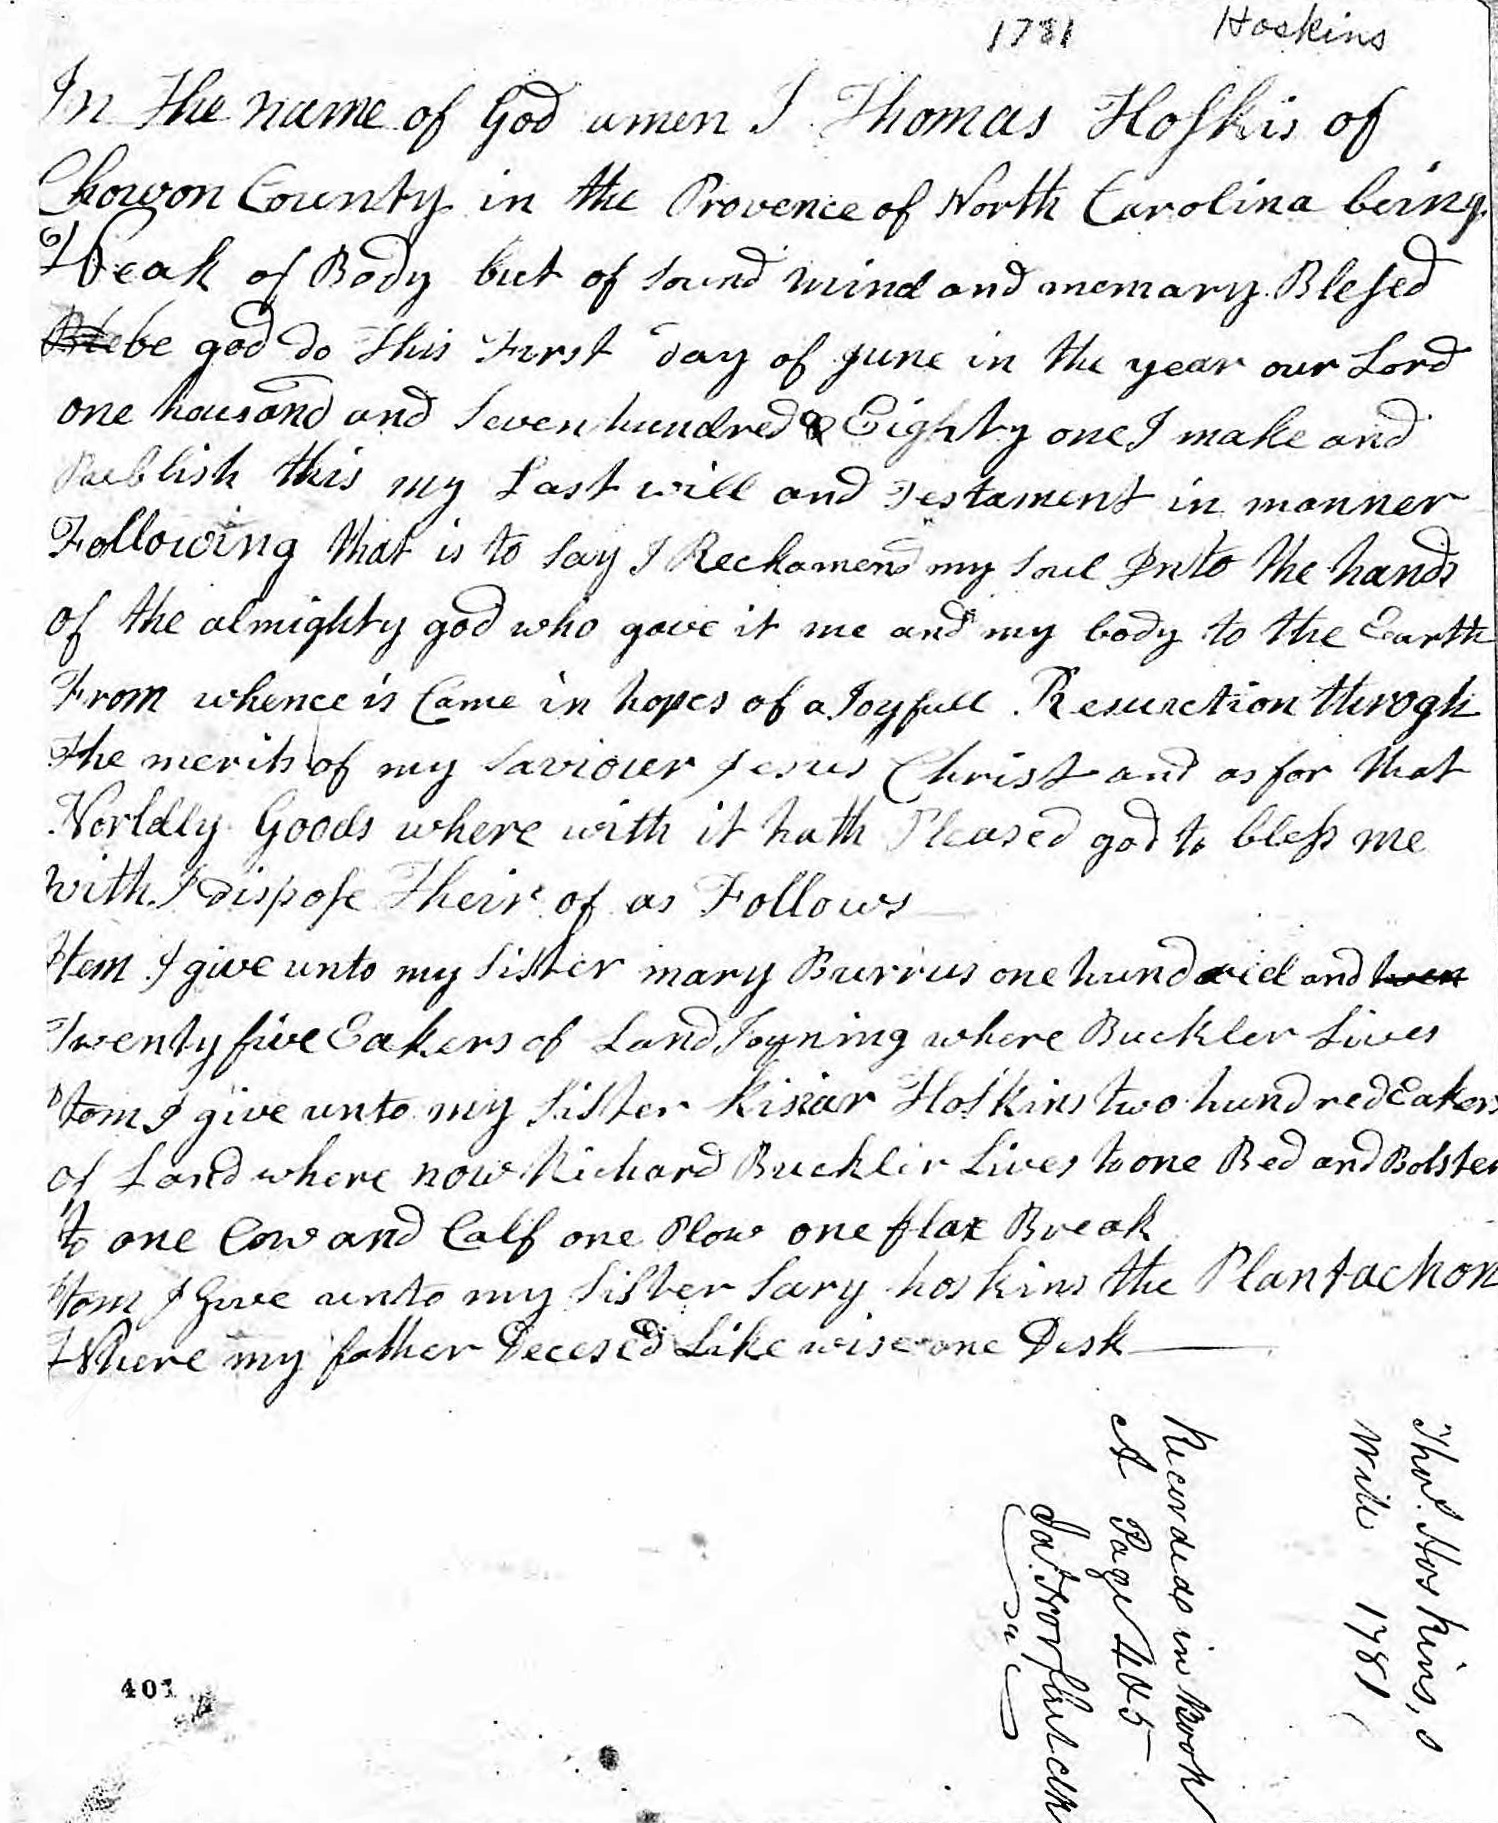 1781 Hoskins
In The name of God amen I Thomas Hoskis of
Chowon County in the Provence of North Carolina being
Weak of Body but of Sound mind and memary Blessed
Ble be god do This First day of June in the year our Lord
one housand and Seven hundred & Eighty one I make and
Publish this my Last will and Testament in manner
Following that is to Say I Reckamend my Soul Into the hands
of the almighty god who gave it me and my body to the Earth
From whence is Came in hopes of a Joyfull Resurection throgh
The merits of my Saviour Jesus Christ and as for that
Worldly Goods where with it hath Pleased god to bless me
with I Dispose Their of as Follows
Item I give unto my Sister mary Burrus one hundried and twen
Twenty five Eakers of Land Joyning where Buckler Lives
Itom I give unto my Sister Kisiar Hoskins two hundred Eakers
of Land where now Richard Buckler Lives to one Bed and Bolster
to one Cow and Calf one Plow one flax Break
Itom I Give unto my Sister Sary hoskins the Plantachon
Where my father Decesed Like wise one Desk
Thos. Hoskins, s
Will 1781
Recorded in Book
A Page 405
401